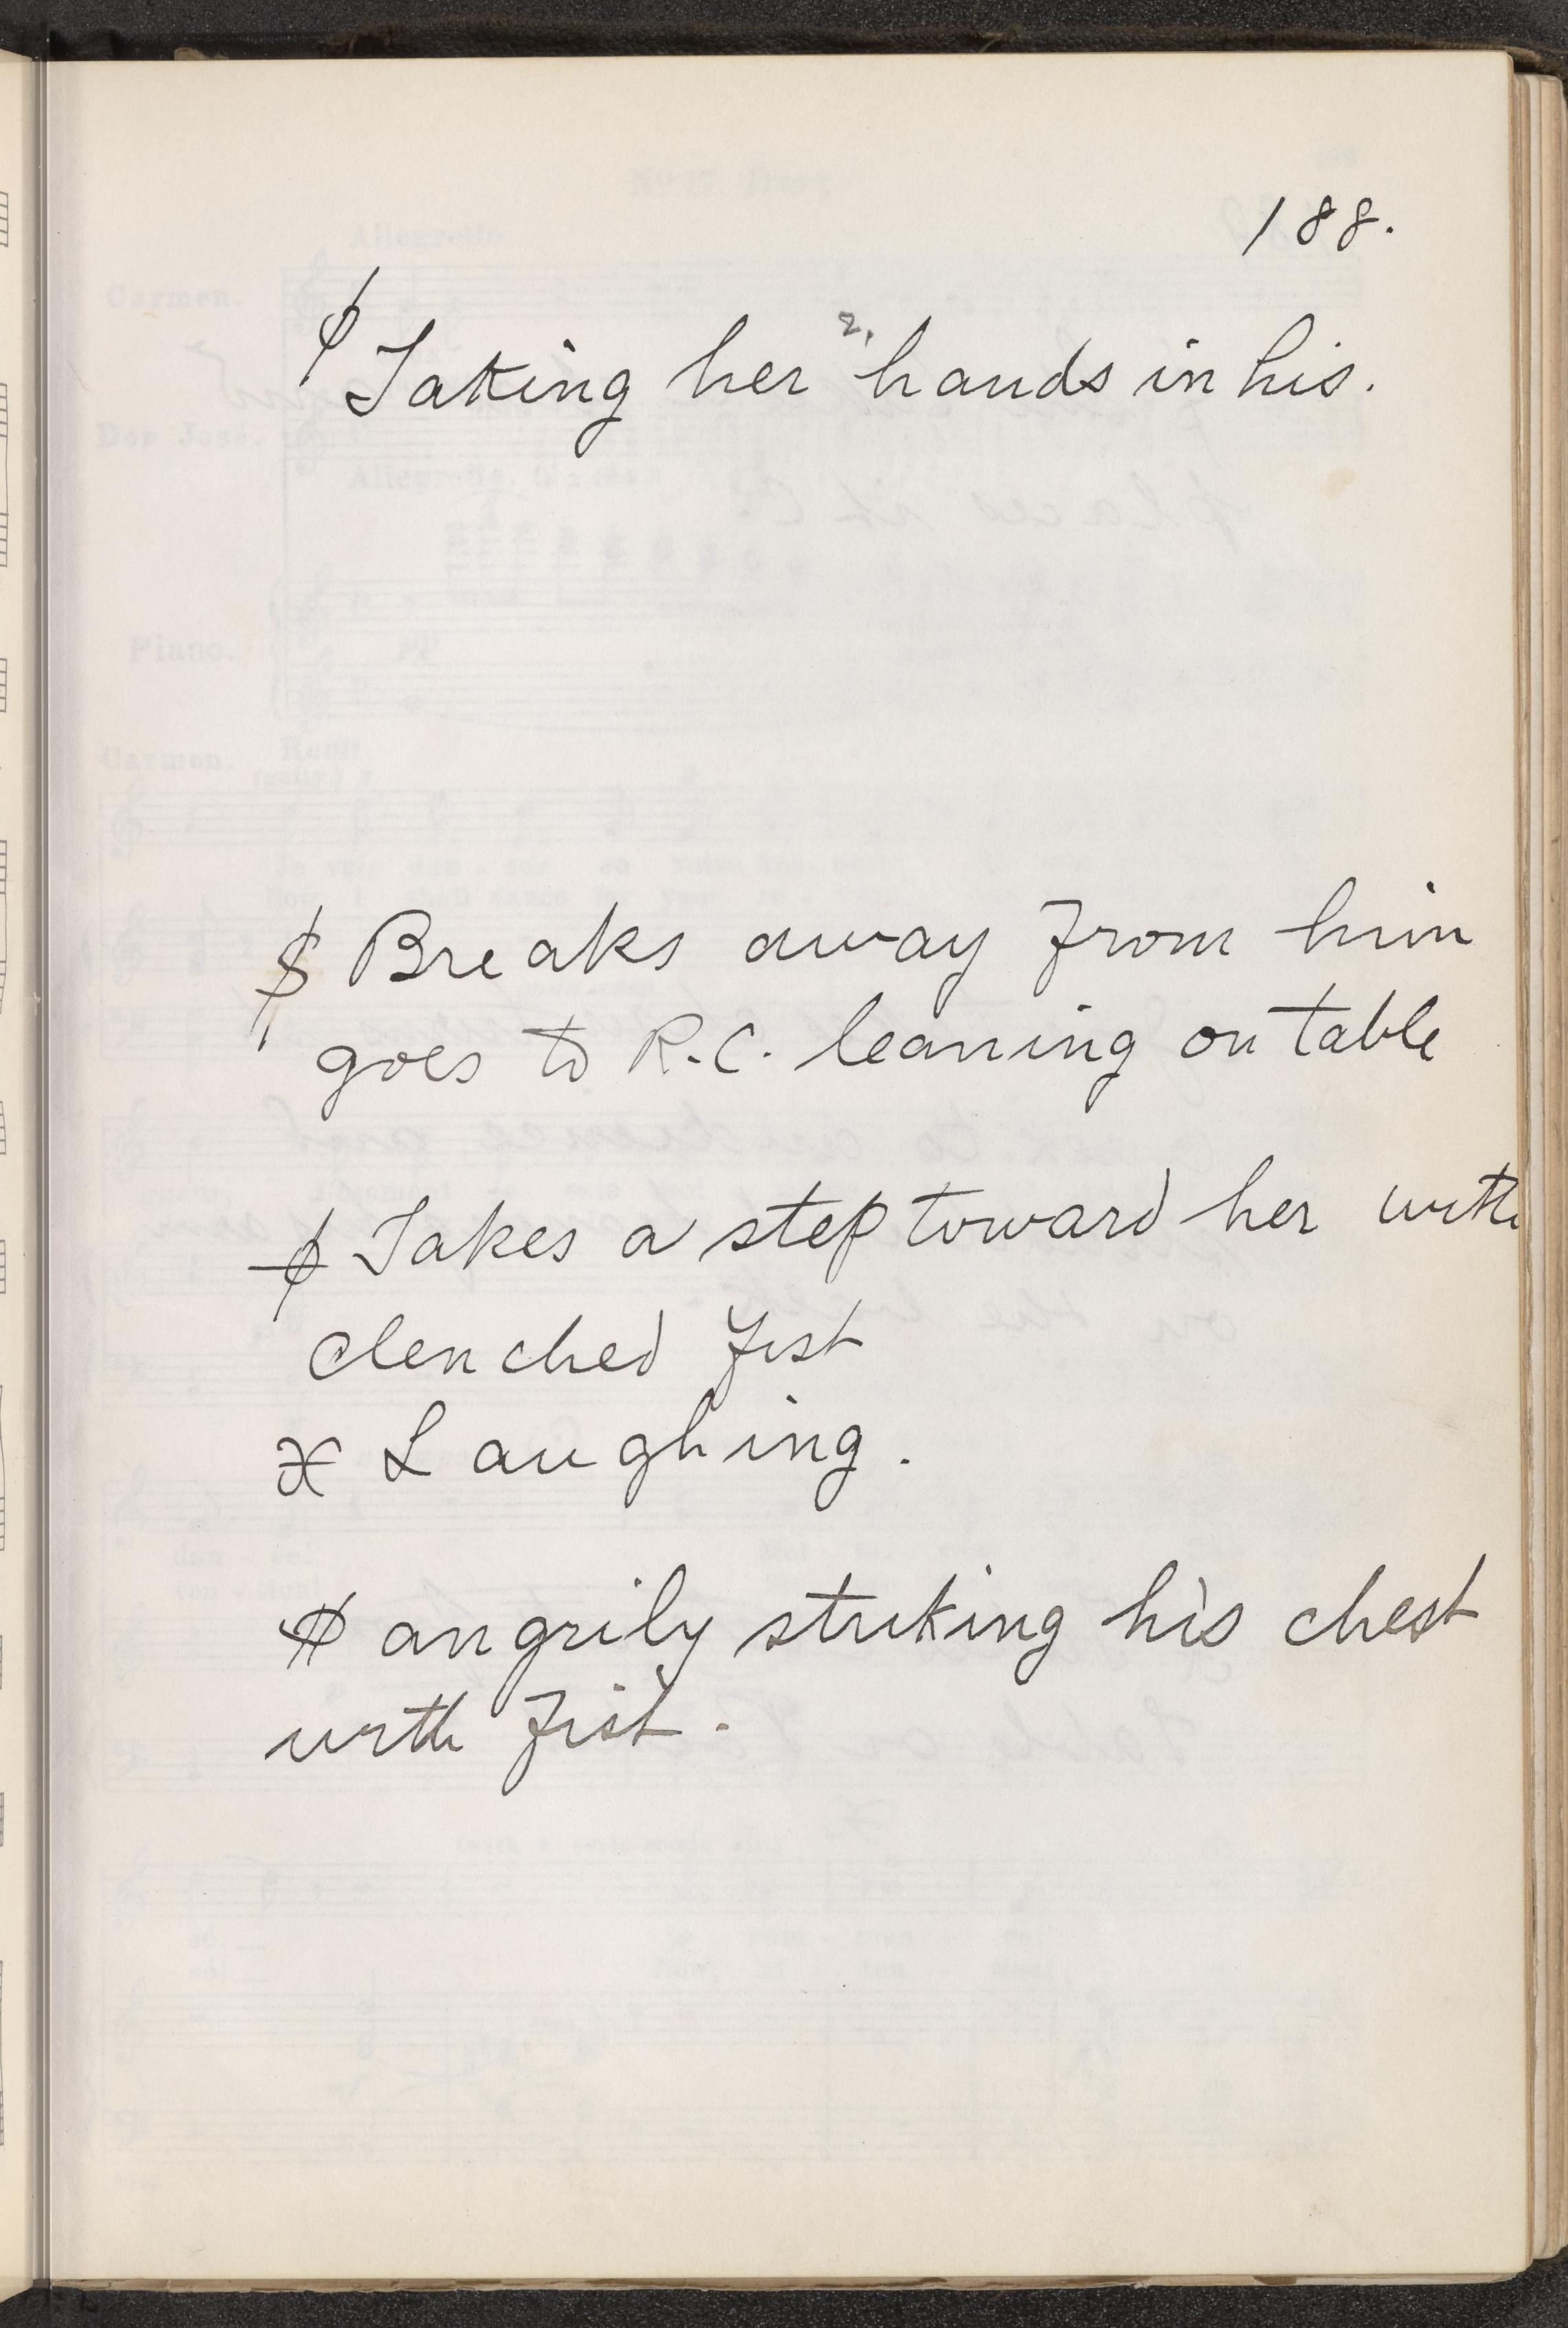 188.
Taking her 2. hands in his.
Breaks away from him
goes to R.C. leaning on table
Takes a step toward her with
clenched fist
x Laughing.
angrily striking his chest
with fist.